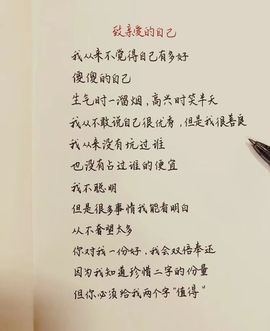 致亲爱的自己
我从来不觉得自己有多好
傻傻的自己
生气时一溜烟，高兴时笑半天
我从不敢说自己很优秀，但是我很善良
我从来没有坑过谁
也没有占过谁的便宜
我不聪明
但是很多事情我能看明白
从不奢望太多
你对我一份好，我会双倍奉还
因为我知道珍惜二字的份量
但你必须给我两个字“值得”